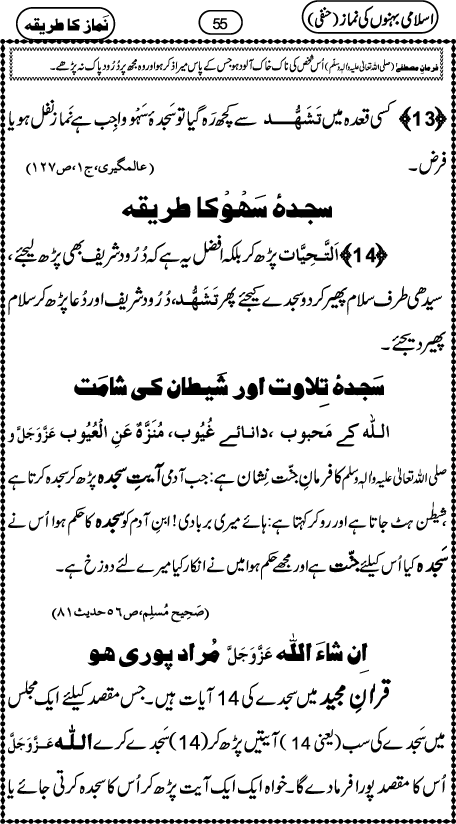 اسلامی بہنوں کی نماز (حنفی)
55
نَماز کا طریقہ
فرمانِ مصطفےٰ (صلی اللہ تعالیٰ علیہ والہ وسلّم) اُس شخص کی ناک خاک آلود ہو جس کے پاس میرا ذکر ہو اور وہ مجھ پر دُرُود پاک نہ پڑھے۔
﴿13﴾ کسی قعدہ میں تَشَھُّد سے کچھ رہ گیا تو سَجدۂ سَہْو واجِب ہے نَماز نفل ہو یا
فرض۔ (عالمگیری، ج۱، ص۱۲۷)
سجدۂ سَہْو کا طریقہ
﴿14﴾ اَلتَّحِیَّات پڑھ کر بلکہ افضل یہ ہے کہ دُرُود شریف بھی پڑھ لیجئے،
سیدھی طرف سلام پھیر کر دو سجدے کیجئے پھر تَشَھُّد، دُرُود شریف اور دُعا پڑھ کر سلام
پھیر دیجئے۔
سَجدۂ تِلاوت اور شَیطان کی شامَت
اللّٰہ کے مَحبوب، دانائے غُیُوب، مُنَزَّہٌ عَنِ الْعُیُوب عَزَّوَجَلَّ و
صلی اللہ تعالیٰ علیہ والہ وسلم کا فرمانِ جنّت نِشان ہے: جب آدَمی آیتِ سجدہ پڑھ کر سجدہ کرتا ہے
، شیطٰن ہٹ جاتا ہے اور رو کر کہتا ہے: ہائے میری بربادی! ابنِ آدم کو سجدہ کا حکم ہوا اُس نے
سَجدہ کیا اُس کیلئے جنّت ہے اور مجھے حکم ہوا میں نے انکار کیا میرے لئے دوزخ ہے۔
(صَحِیح مُسلِم، ص۵۶ حدیث ۸۱)
اِن شاءَ اللّٰہ عَزَّوَجَلَّ مُراد پوری ہو
قراٰنِ مجید میں سجدے کی 14 آیات ہیں۔ جس مقصد کیلئے ایک مجلس
میں سَجدے کی سب (یعنی 14) آیتیں پڑھ کر (14) سَجدے کرے اللّٰہ عَزَّوَجَلَّ
اُس کا مقصد پورا فرما دے گا۔ خواہ ایک ایک آیت پڑھ کر اُس کا سجدہ کرتی جائے یا